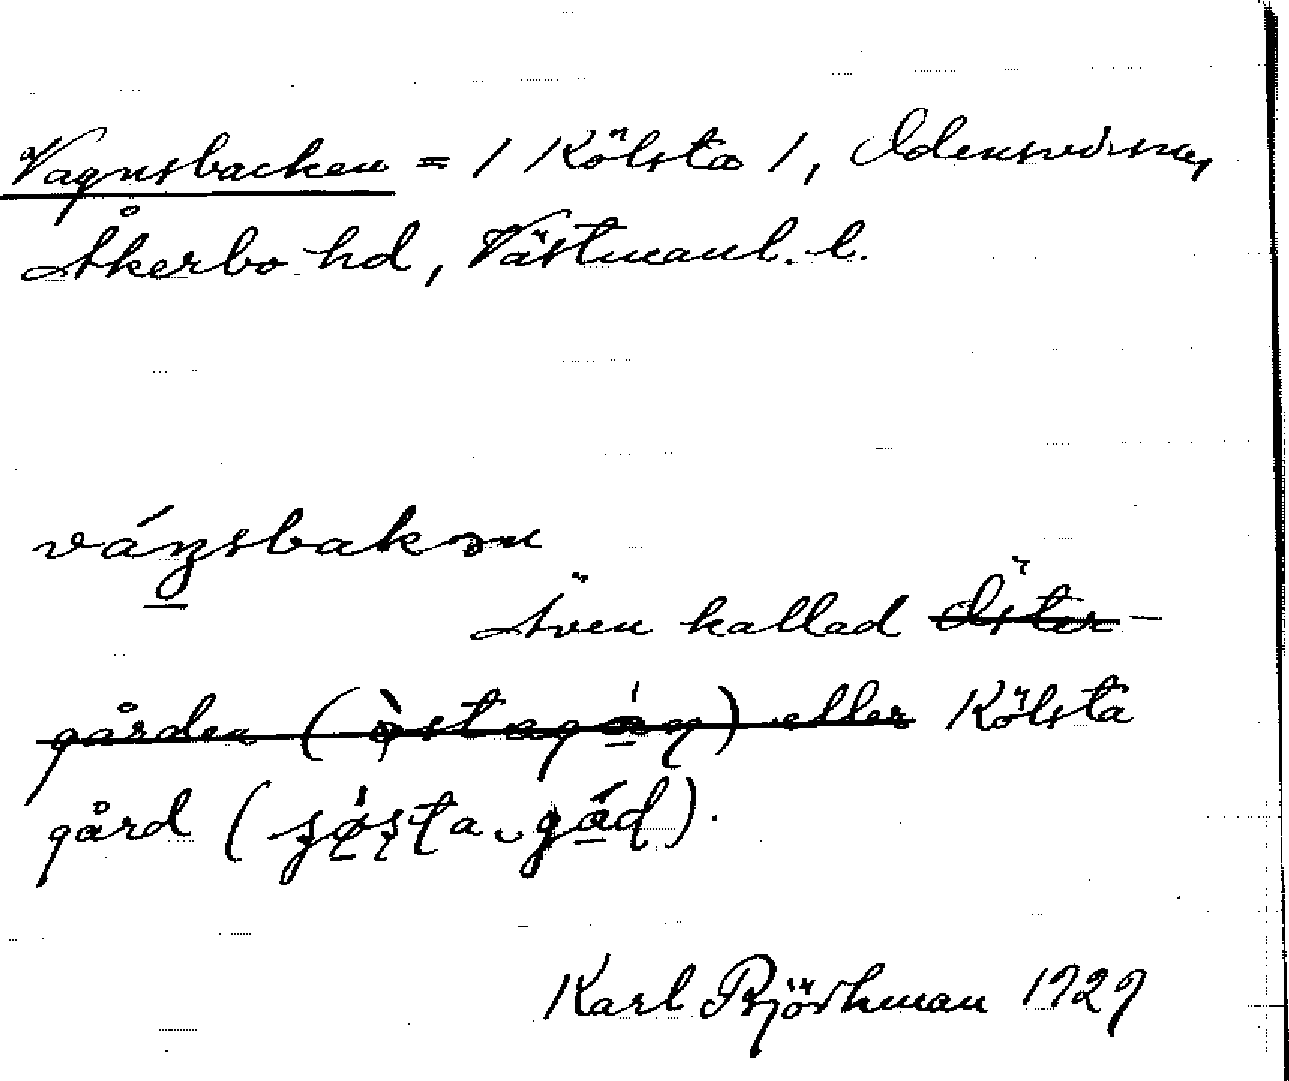 Vagnsbacken = / Kölsta /, Odensvi sn,
Åkerbo hd, Västmanl. l.
váŋsbakən
Även kallad Öster-
gården (òstagág) eller Kölsta
gård (
Karl Björkman 1929